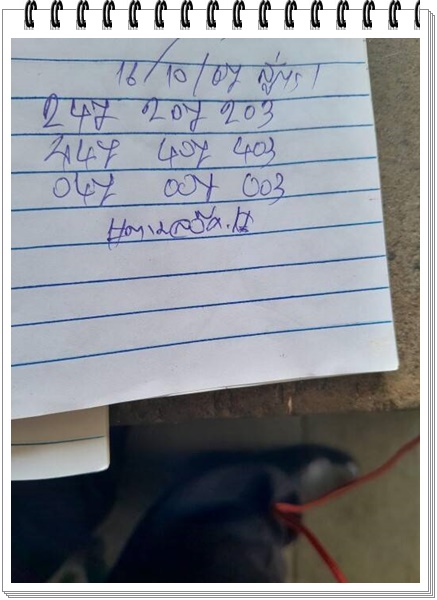 16/10/67 สูตร 1
247 207 203
447 407 403
047 007 003